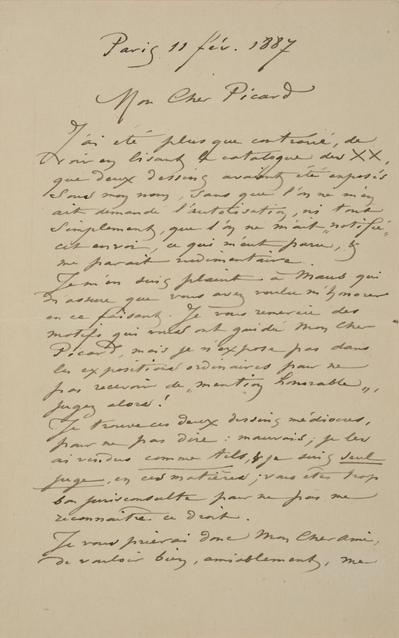 Paris 11 fév. 1887
Mon Cher Picard
J'ai été plus que contrarié, de
voir en lisant le catalogue des XX,
que deux dessins avaient été exposés
sous mon nom, sans que l'on ne m'en
ait demandé l'autorisation, ni tout
simplement, que l'on ne m'ait "notifié"
cet envoi, ce qui m'eut paru, &
me parait rudimentaire.
Je m'en suis plaint à Maus qui
m'assure que vous avez voulu m'honorer
en ce faisant. Je vous remercie des
motifs qui vous ont guidé Mon Cher
Picard, mais je n'expose pas dans
les expositions ordinaires pour ne
pas recevoir de "mention honorable",
jugez alors!
Je trouve ces deux dessins médiocres,
pour ne pas dire: mauvais; je les
ai vendus comme tels, & je suis seul
juge, en ces matières; vous êtes trop
bon jurisconsulte pour ne pas me
reconnaitre ce droit.
Je vous prierai donc Mon Cher ami,
de vouloir bien, amiablement, me